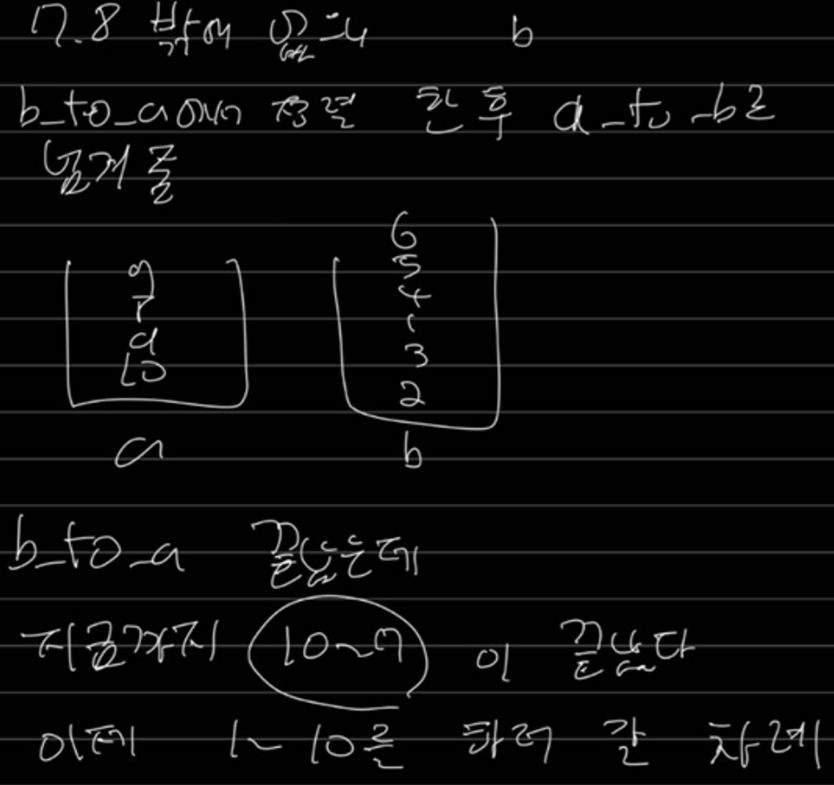 7.8 밖에 없으니 b
b_to_a에서 정렬 한 후 a_to_b로
넘겨줌
6
7 5
8 4
9 1
10 3
2
a b
b_to_a 끝났는데
지금까지 10~7 이 끝났다
이제 1~10를 하러 갈 차례